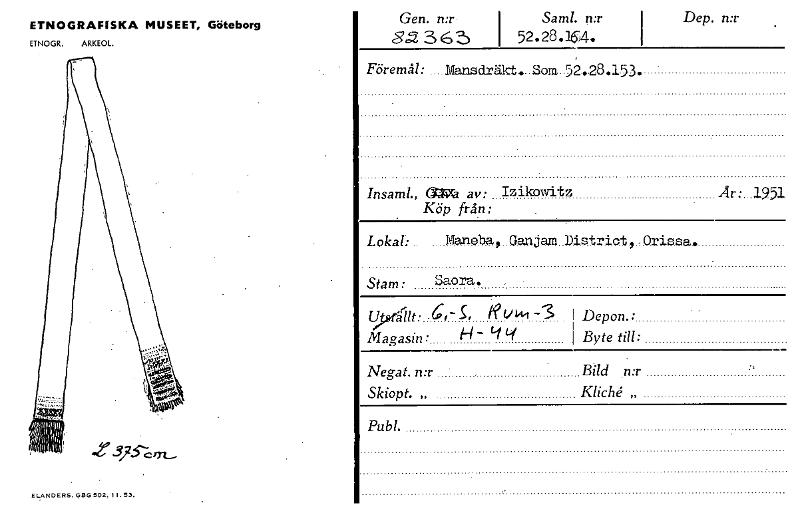 ETNOGRAFISKA MUSEET, Göteborg
ETNOGR. ARKEOL.
L 375 cm
ELANDERS. GBG 502, 11. 53.
Gen. n:r Saml. n:r Dep. n:r
82363 52.28.164.
Föremål: Mansdräkt. Som 52.28.153.
Insaml., av: Izikowitz År: 1951
Köp från:
Lokal: Maneba, Ganjam District, Orissa.
Stam: Saora.
Utställt: G.-S. Rum-3 Depon.:
Magasin: H-44 Byte till:
Negat. n:r Bild n:r
Skiopt. „ Kliché „
Publ.